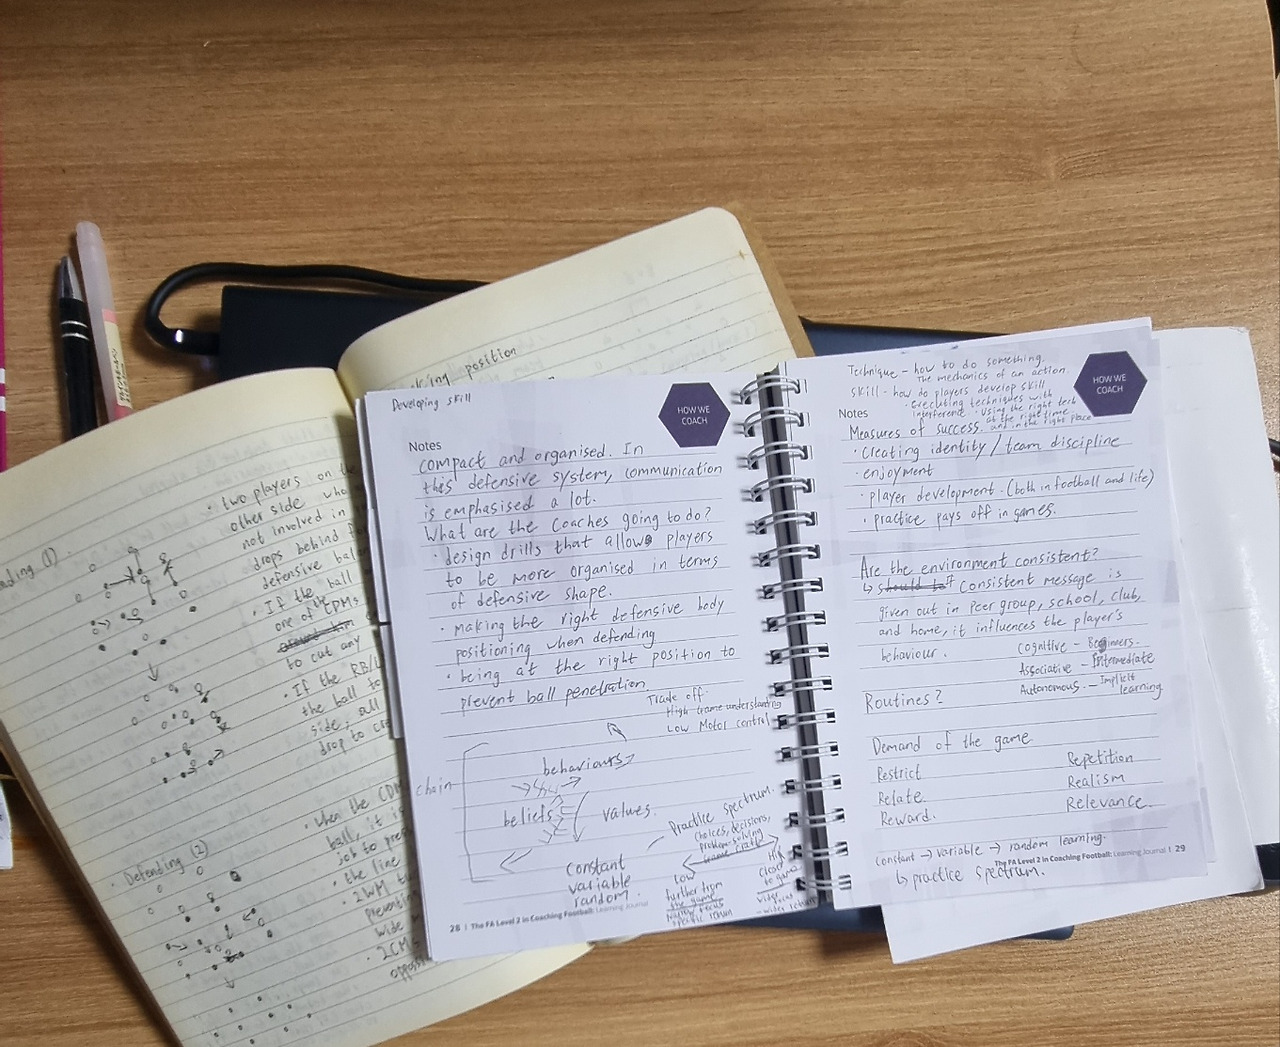 king position
ading (1)
• two players on the
other side who
not involved in
drops behind
defensive
• If the ball
one of the CDMs
to cut any
• If the RB/L
the ball to
side, all
drop to
• When the CDM
ball, it is
job to pre
the line
• 2WM
preventin
wide
• 2CMs
oppos
• Defending (2)
Developing skill
HOW WE
COACH
Notes
compact and organised. In
this defensive system, communication
is emphasised a lot.
What are the coaches going to do?
• design drills that allow players
to be more organised in terms
of defensive shape.
• making the right defensive body
positioning when defending
• being at the right position to
prevent ball penetration
Trade off.
High Game understanding
Low Motor control
chain
behaviours
beliefs
values.
Practice spectrum.
choices, decisions,
problem solving
Constant
variable
random.
Low
further from
the game
Narrow focus
specific return
High
Close
to game
Wider
focus
- wider return
28 | The FA Level 2 in Coaching Football: Learning Journal
Technique - how to do something.
The mechanics of an action
Skill - how do players develop skill
• Executing techniques with
interference. • Using the right tech
at the right time
and in the right place
HOW WE
COACH
Notes
Measures of success.
• Creating identity / team discipline
• enjoyment
• player development. (both in football and life)
• practice pays off in games.
Are the environment consistent?
↳ should be? Consistent message is
given out in peer group, school, club,
and home, it influences the player's
behaviour.
Cognitive - Beginners.
Associative - Intermediate
Autonomous. - Implicit
learning
Routines?
Demand of the game
Restrict Repetition
Relate. Realism
Reward. Relevance.
Constant → variable → random learning.
↳ practice spectrum.
The FA Level 2 in Coaching Football: Learning Journal | 29